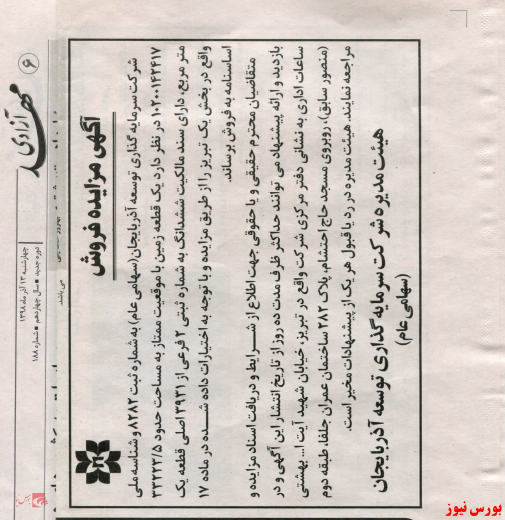 ۶
مهد آزادی
چهارشنبه ۱۳ آذر ماه ۱۳۹۸
دوره جدید ■ سال چهاردهم ■ شماره ۱۸۸
آگهی مزایده فروش
شرکت سرمایه گذاری توسعه آذربایجان (سهامی عام) به شماره ثبت ۸۲۸۲ و شناسه ملی
۱۰۲۰۰۱۴۲۴۱۷ در نظر دارد یک قطعه زمین با موقعیت ممتاز به مساحت حدود ۳۳۲۲۳/۵
متر مربع، دارای سند مالکیت ششدانگ به شماره ثبتی ۲ فرعی از ۳۹۳۱ اصلی قطعه یک
واقع در بخش یک تبریز را از طریق مزایده و با توجه به اختیارات داده شده در ماده ۱۷
اساسنامه به فروش برساند.
متقاضیان محترم حقیقی و یا حقوقی جهت اطلاع از شرایط و دریافت اسناد مزایده و
بازدید و ارائه پیشنهاد می توانند حداکثر ظرف مدت ده روز از تاریخ انتشار این آگهی و در
ساعات اداری به نشانی دفتر مرکزی شرکت واقع در تبریز، خیابان شهید آیت ا... بهشتی
(منصور سابق)، روبروی مسجد حاج احتشام، پلاک ۲۸۲ ساختمان عمران جلفا، طبقه دوم
مراجعه نمایند. هیئت مدیره در رد یا قبول هر یک از پیشنهادات مخیر است.
هیئت مدیره شرکت سرمایه گذاری توسعه آذربایجان
(سهامی عام)
می باشد.
بورس نیوز